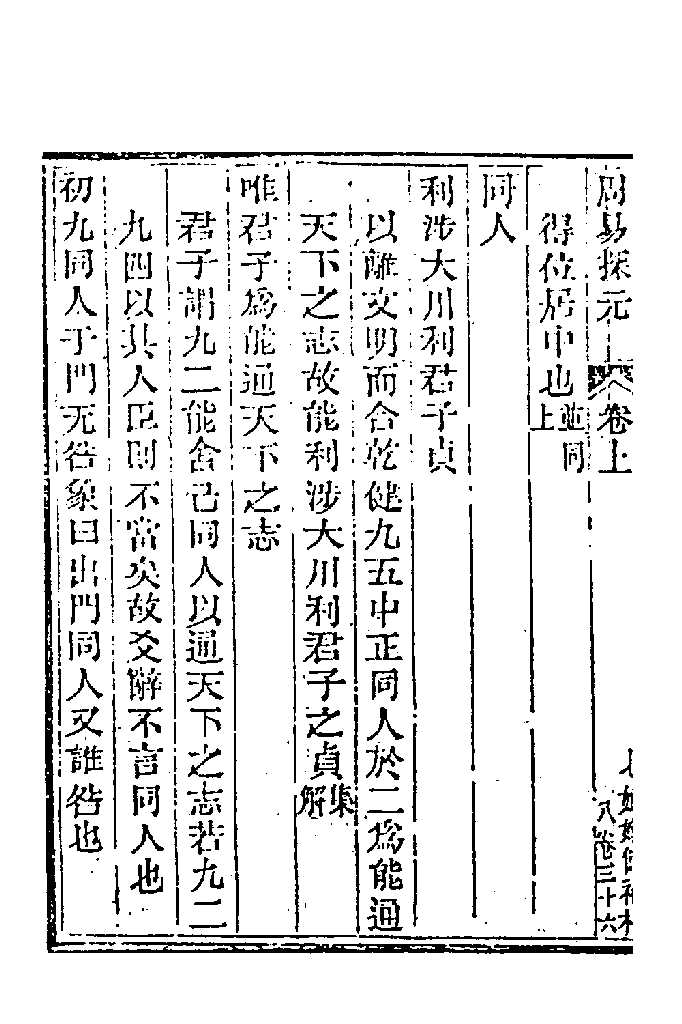 周易探元 卷上
得位居中也並同上
同人
利涉大川利君子貞
以離文明而合乾健九五中正同人於二為能通
天下之志故能利涉大川利君子之貞集解
唯君子為能通天下之志
君子謂九二能舍己同人以通天下之志若九二
九四以其人臣則不當矣故爻辭不言同人也
初九同人于門无咎象曰出門同人又誰咎也
卷三十六